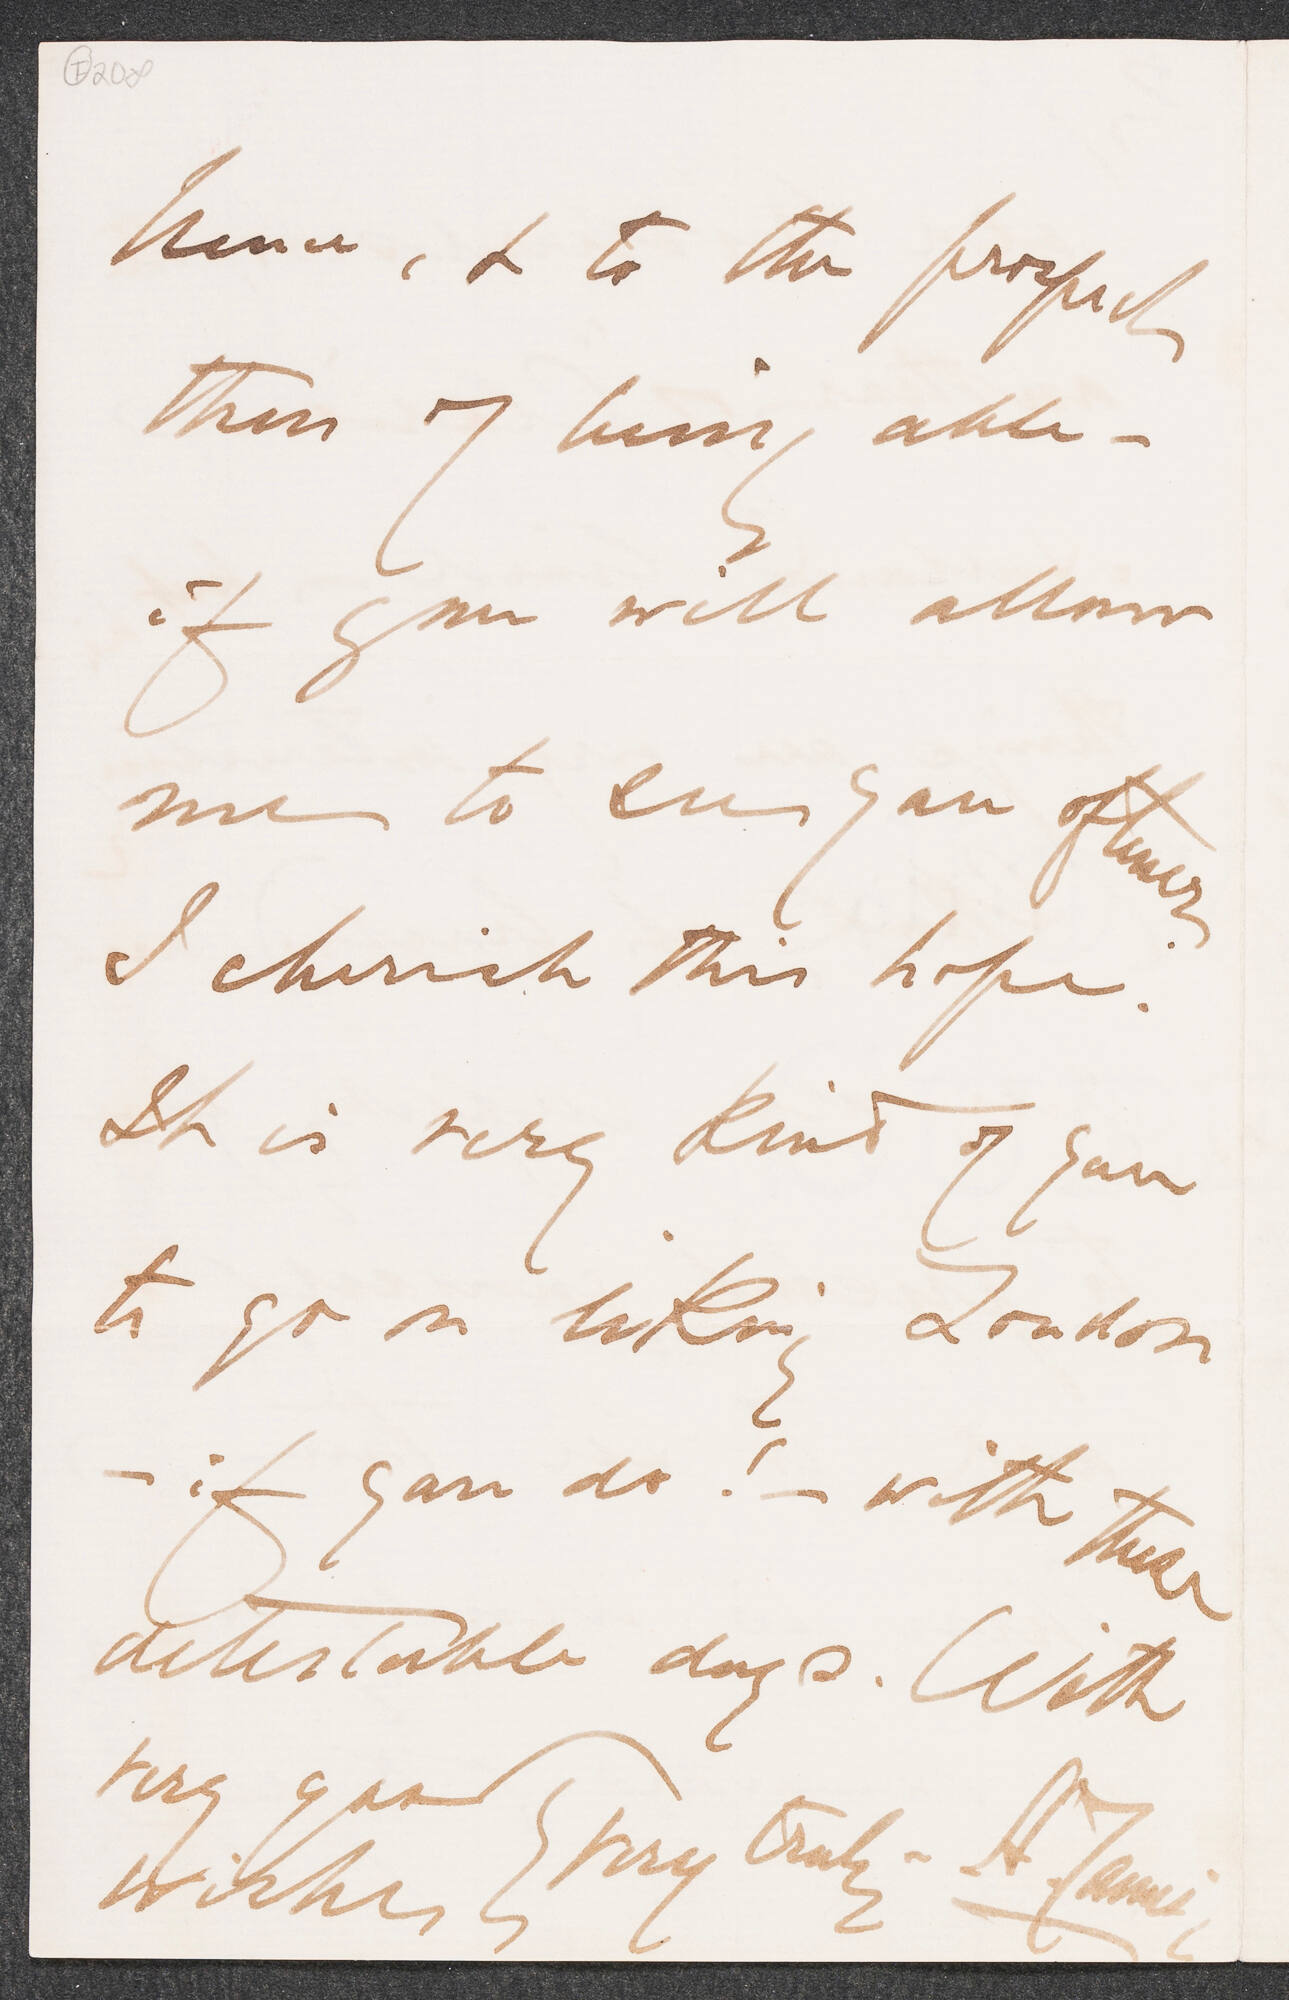 208
hence, & to the prospect,
then of being able —
if you will allow
me to see you oftener.
I cherish this hope.
It is very kind of you
to go on liking London
— if you do! — with these
detestable days. With
very good
wishes, yours very truly — H James